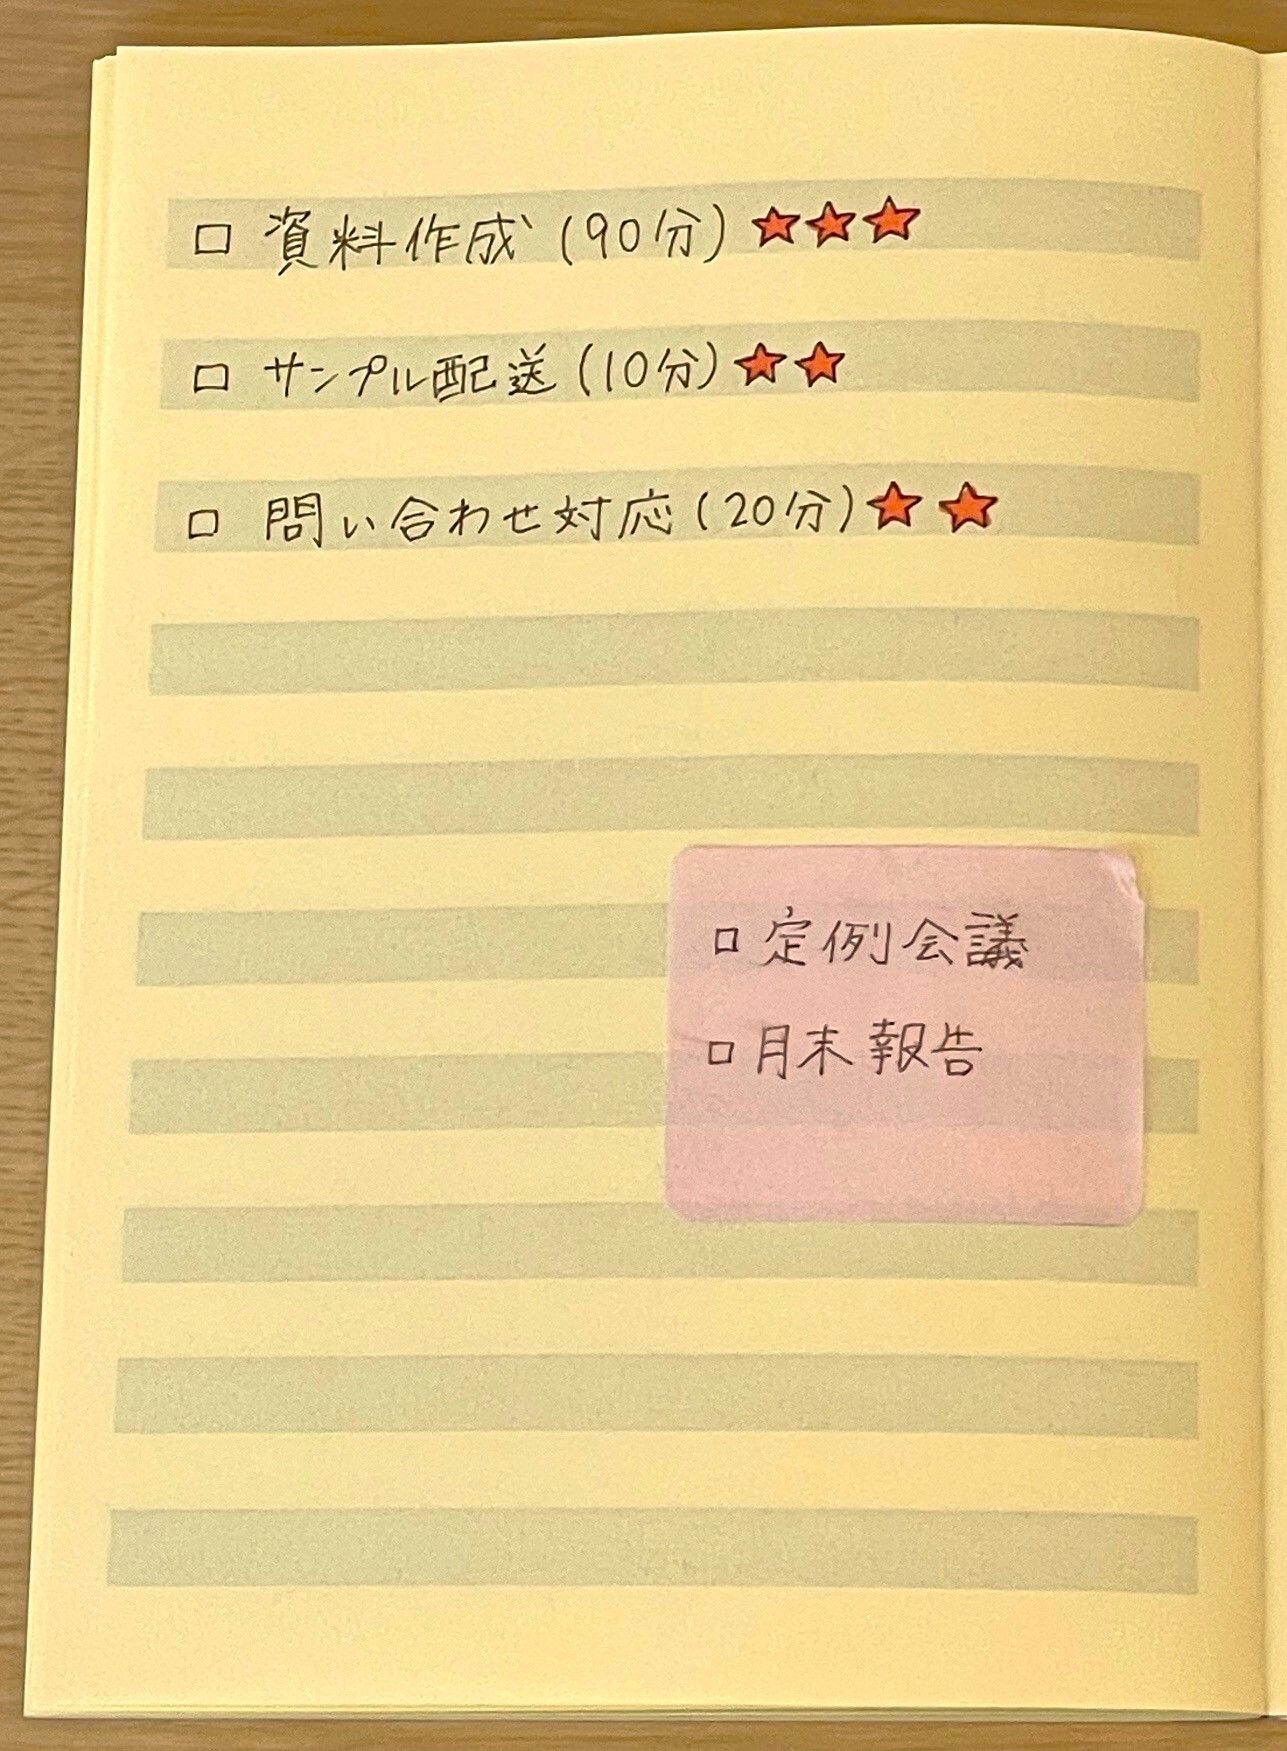 □ 資料作成 (90分) ★★★
□ サンプル配送 (10分) ★★
□ 問い合わせ対応 (20分) ★★
□ 定例会議
□ 月末報告